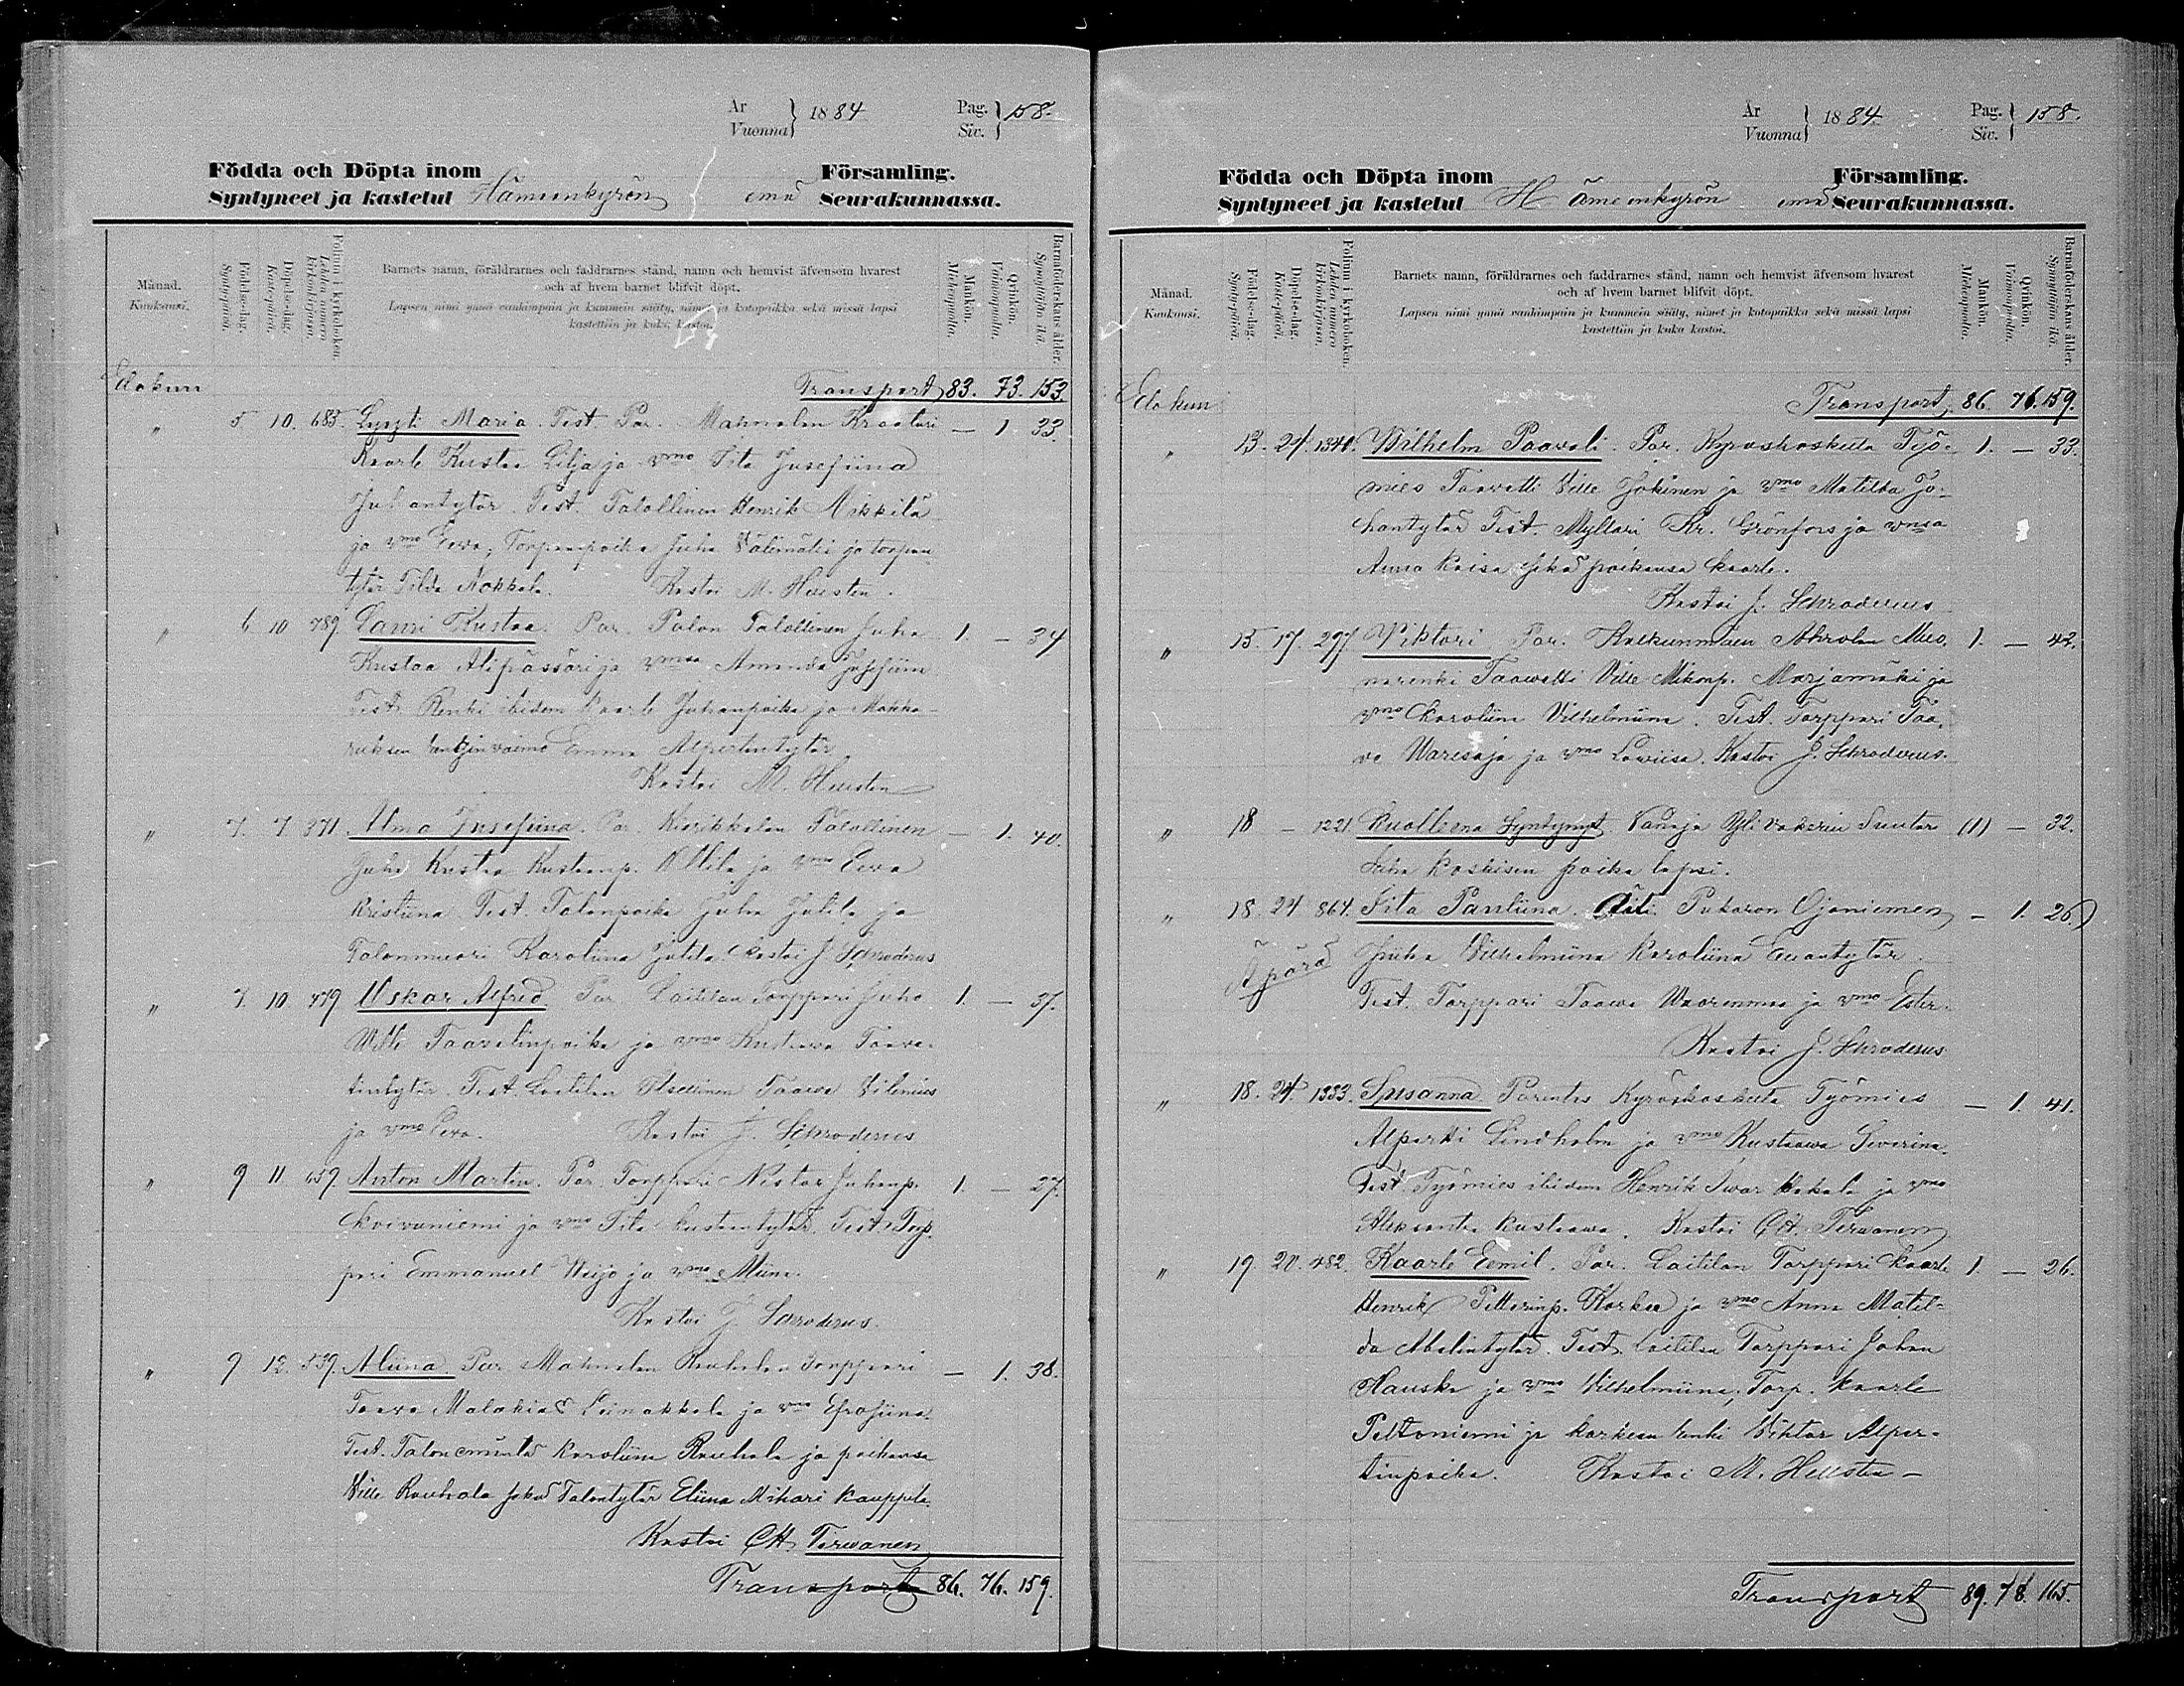 År
Vuonna } 1884
Pag.
Siv. } 158.
Födda och Döpta inom Församling.
Syntyneet ja kastetut Hämeenkyrön emä Seurakunnassa.
Månad.
Kuukausi.
Födelse-dag.
Syntypäivä.
Döpelse-dag.
Kastepäivä.
Folium i kyrkoboken.
Lehden numero kirkonkirjassa.
Barnets namn, föräldrarnes och faddrarnes stånd, namn och hemvist äfvensom hvarest
och af hvem barnet blifvit döpt.
Lapsen nimi ynnä vanhimpain ja kummein sääty, nimet ja kotopaikka sekä missä lapsi
kastettiin ja kuka kastoi.
Mankön.
Miehenpuolia.
Qvinkön.
Vaimonpuolia.
Barnaföderskans ålder.
Synnyttäjän ikä.
Elokuu Transport 83. 73. 153.
" 5 10. 685. Lyyti Maria. Test. Par. Mahnalan Kraatari — 1 33.
Kaarle Kustaa Lilja ja vmo Iita Josefiina
Juhantytär. Test. Talollinen Henrik Mikkilä
ja vmo Eeva, Torpanpoika Juha Välimäki ja torpan
tytär Tilda Nokkala. Kastoi M. Hellsten.
" 6 10 789. Lauri Kustaa. Par. Palon Talollinen Juha 1. — 34
Kustaa Alipässäri ja vmsa Amanda Josefiina
Test. Renki ibidem Kaarle Juhanpoika ja Makka-
ruksen vaimo Emma Alpertintytär
Kastoi M. Hellsten
" 7. 7 371. Alma Josefiina. Par. Kierikkalan Talollinen — 1. 40.
Juha Kustaa Kustaanp. Uttila ja vmo Eeva
Kristiina. Test. Talonpoika Juha Jutila ja
Talonmuori Karoliina Jutila. Kastoi J. Schroderus
" 7. 10 479 Oskar Alfred. Par. Laitilan Torppari Juho 1. — 37.
Ville Taavetinpoika ja vmo Kustaava Taave-
tintytär. Test. Laitilan Itsellinen Taava Vilenius
ja vmo Eeva. Kastoi J. Schroderus
" 9 11 659 Anton Martin. Par. Torppari Nestor Juhanp. 1. — 27.
Koivuniemi ja vmo Iita Kustaantytär. Test. Torp-
pari Emmanuel Weijo ja vmo Miina.
Kastoi J. Schroderus.
" 9 12. 539. Miina. Par. Mahnalan Rauhalan Torppari — 1. 38.
Taava Malakias Leinakkala ja vmo Efrosiina.
Test. Talonemäntä Karoliina Rauhala ja poikansa
Ville Rauhala sekä Talontytär Eliina Mihari Kauppila.
Kastoi CH. Terwanen
Transport 86. 76. 159.
År
Vuonna } 1884.
Pag.
Siv. } 158.
Födda och Döpta inom Församling.
Syntyneet ja kastetut Hämeenkyrön emä Seurakunnassa.
Månad.
Kuukausi.
Födelse-dag.
Syntypäivä.
Döpelse-dag.
Kastepäivä.
Folium i kyrkoboken.
Lehden numero kirkonkirjassa.
Barnets namn, föräldrarnes och faddrarnes stånd, namn och hemvist äfvensom hvarest
och af hvem barnet blifvit döpt.
Lapsen nimi ynnä vanhimpain ja kummein sääty, nimet ja kotopaikka sekä missä lapsi
kastettiin ja kuka kastoi.
Mankön.
Miehenpuolia.
Qvinkön.
Vaimonpuolia.
Barnaföderskans ålder.
Synnyttäjän ikä.
Elokuu Transport, 86. 76. 159.
" 13. 24. 1340. Wilhelm Paavali. Par. Kyröskoskelta Työ- 1. — 33.
mies Taavetti Ville Jokinen ja vmo Matilda Jo-
hantytär Test. Myllari Kr. Grönfors ja vmsa
Anna Kaisa sekä poikansa Kaarle.
Kastoi J. Schroderus
" 15. 17. 297. Viktori. Par. Kalkunmäen Ahrolan Muo- 1. — 42.
narenki Taavetti Ville Mikonp. Marjamäki ja
vmo Karoliina Vilhelmiina. Test. Torppari Taa-
va Waresoja ja vmo Loviisa. Kastoi J. Schroderus.
" 18 — 1221. Kuolleena Syntynyt. Vanaja Yli Vakerin Suutar (1) — 32.
Juha Koskisen poika lapsi.
" 18. 24 864. Iita Pauliina. Äiti. Pukaron Ojaniemen — 1. 26)
Äpärä Piika Vilhelmiina Karoliina Eevantytär.
Test. Torppari Taava Vuorenmaa ja vmo Ester.
Kastoi J. Schroderus
" 18. 24. 1333. Susanna. Parentes Kyröskoskelta Työmies — 1. 41.
Alpertti Lindholm ja vmo Kustaava Severina.
Test. Työmies ibidem Henrik Ivar Kokala ja vmo
Aleksantra Kustaava. Kastoi CH. Terwanen
" 19 20. 482. Kaarle Eemil. Par. Laitilan Torppari Kaarle 1. — 26.
Henrik Petterinp. Korkee ja vmo Anna Matil-
da Abelintytär. Test. Laitilan Torppari Johan
Hauska ja vmo Vilhelmiina, Torp. Kaarle
Peltoniemi ja Korkeen renki Viktor Alper-
tinpoika. Kastoi M. Hellsten —
Transport 89. 78. 165.